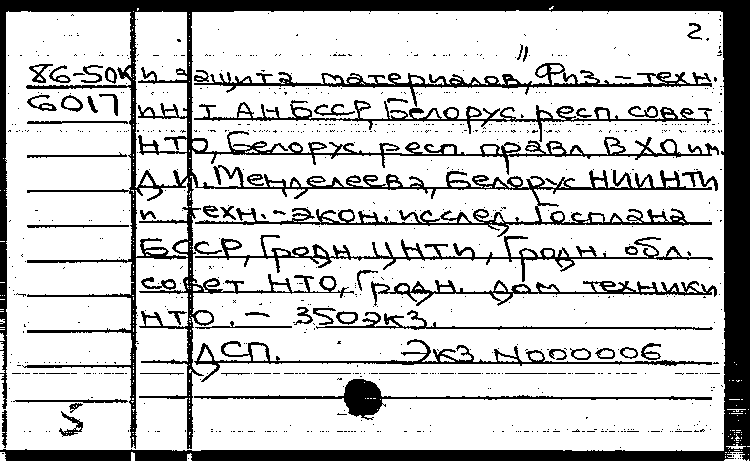 2.
86-50К и защита материалов," Физ.-техн.
6017 ин-т АН БССР, Белорус. респ. совет
НТО, Белорус. респ. правл. ВХО им.
Д.И. Менделеева, Белорус НИИНТИ
и техн.-экон. исслед. Госплана
БССР, Гродн. ЦНТИ, Гродн. обл.
совет НТО, Гродн. дом техники
НТО. - 350экз.
ДСП. Экз. N000006
5